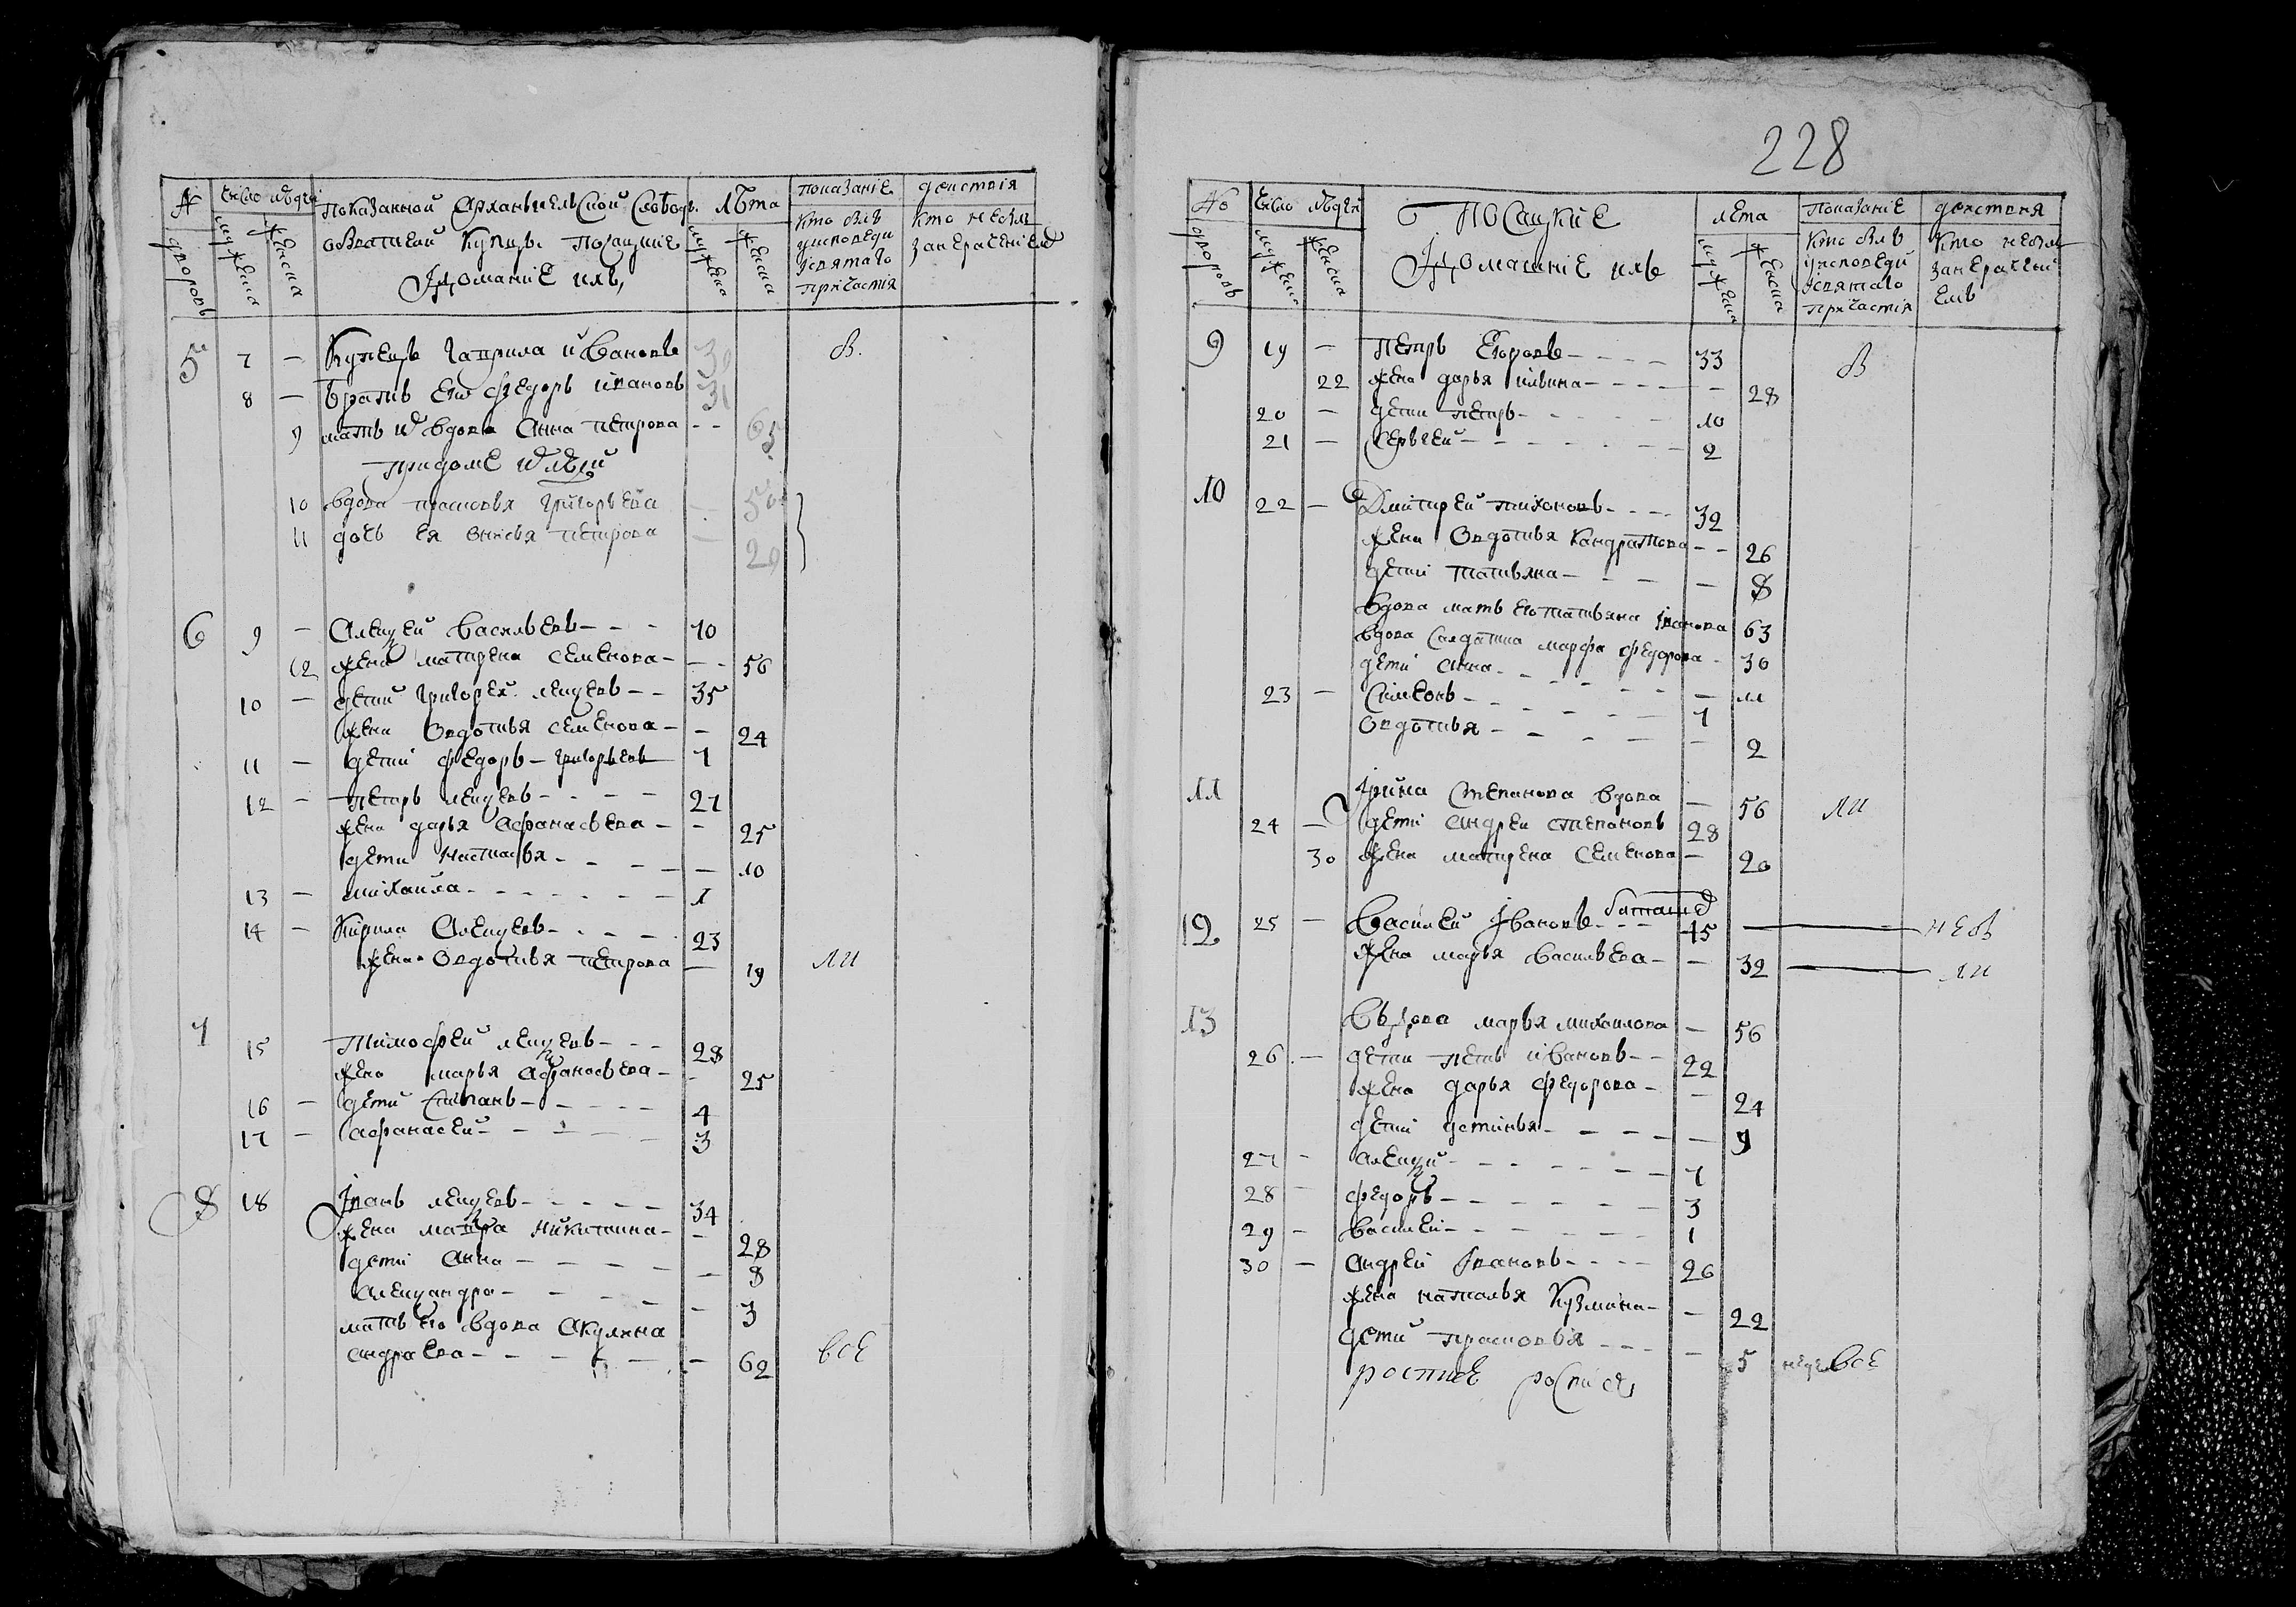 № дворовъ
число людей
мужеска
женска
показанной Архангельской слободы
купцы посацкие
Їдомашние ихъ,
лѣта
мужеска
женска
показанїе
кто былъ
уисповеди
їсвятаго
причастїя
действїя
кто небылъ
5 7 — Купецъ гаврила ивановъ 30 в.
8 — братъ его федоръ ивановъ 31
9 мать их вдова Анна петрова - - 65
придоме их
10 вдова прасковья григорьева — 50
11 дочь ея петрова — 20
6 9 — Алеѯей василевъ - - - 70
12 жена матрена семенова - - - 56
10 — дети григорей леѯеевъ - - 35
жена Овдотья семенова - - 24
11 — дети федоръ - григорьевъ 7
12 — петръ леѯеевъ - - - - 27
жена дарья Афанасьева - - 25
дети настасья - - - - - 10
13 — михаила - - - - - - - 1
14 — Кирила Алеѯеевъ - - - - 23
жена Овдотья петрова — 19 ли
7 15 тимофей леѯеевъ - - - 28
жена марья Афанасьева - - 25
16 — дети степанъ - - - - - 4
17 — афанасей - - - - - 3
8 18 Їванъ леѯеевъ - - - - - 34
жена матра никитина - - 28
дети Анна - - - - - - 8
Алеѯандра - - - - - - 3
мать его вдова Акулина
андраева - - - - - - 62 всё
228
№ дворовъ
число людей
мужеска
женска
посацкие
Їдомашние ихъ
лета
мужеска
женска
показание
кто былъ
уисповеди
їсвятаго
причастїя
кто небыл
9 19 — петръ Егоровъ - - - - 33 в
22 жена дарья ильина - - - - - 28
20 — дети петръ - - - - - 10
21 — Сергей - - - - - - 2
10 22 — Дмитрей тихоновъ - - - 32
жена Овдотья кандратова - - 26
дети татьяна - - - - 8
вдова мать его татьяна їванова 63
вдова салдатка марфа федорова - 30
дети анна - - - - - - 11
23 — Симеонъ - - - - - - 7
Овдотья - - - - - - 2
11 Їрина Степанова вдова — 56 ли
24 — дети андрей степановъ 28
30 жена матрена семенова - 20
12 25 — Василей Ївановъ - - - 45 — небы
жена марья васильева - - 32 — ли
13 вдова марья михаилова — 56
26 — дети петъ ивановъ - - 22
жена дарья федорова - - 24
дети устинья - - - - - 9
27 - алеѯей - - - - - - 7
28 — федоръ - - - - - - 3
29 — василей - - - - - - 1
30 — андрей Ївановъ - - - - 26
жена наталья кузмина - - 22
дети прасковья - - - - 5 все